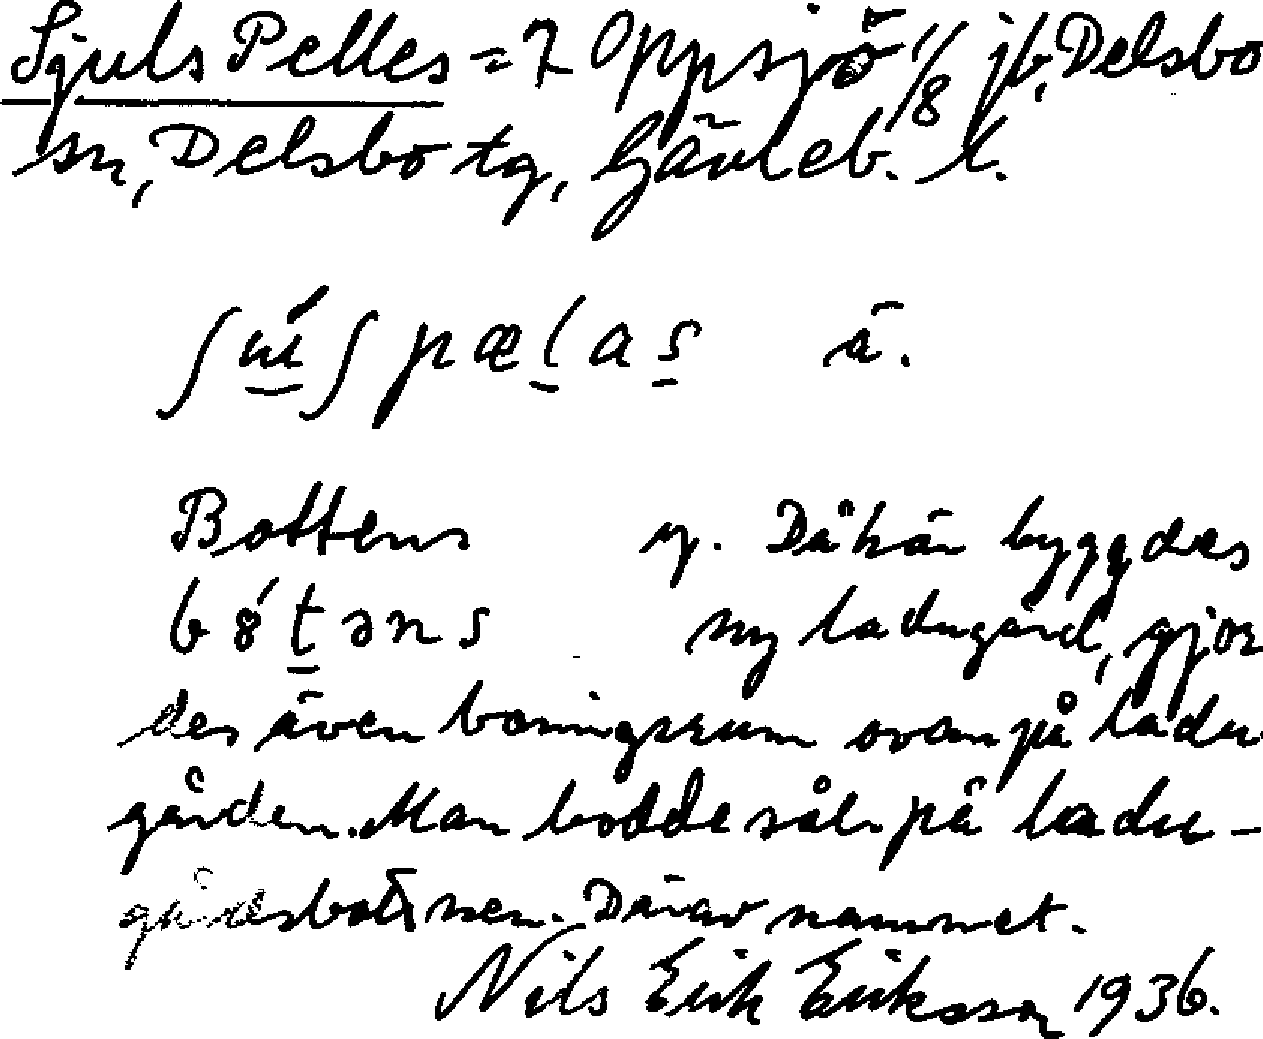 Sjuls Pelles = 7 Oppsjö 1/8 jb, Delsbo
sn, Delsbo tg, Gävleb. l.
ʃɯ́ʃpælas ä.
Bottens y. Då här byggdes
bȣ́təns ny ladugård, gjor
des även boningsrum ovanpå ladu
gården. Man bodde sål. på ladu-
gårdsbottnen. Därav namnet.
Nils Erik Eriksson 1936.